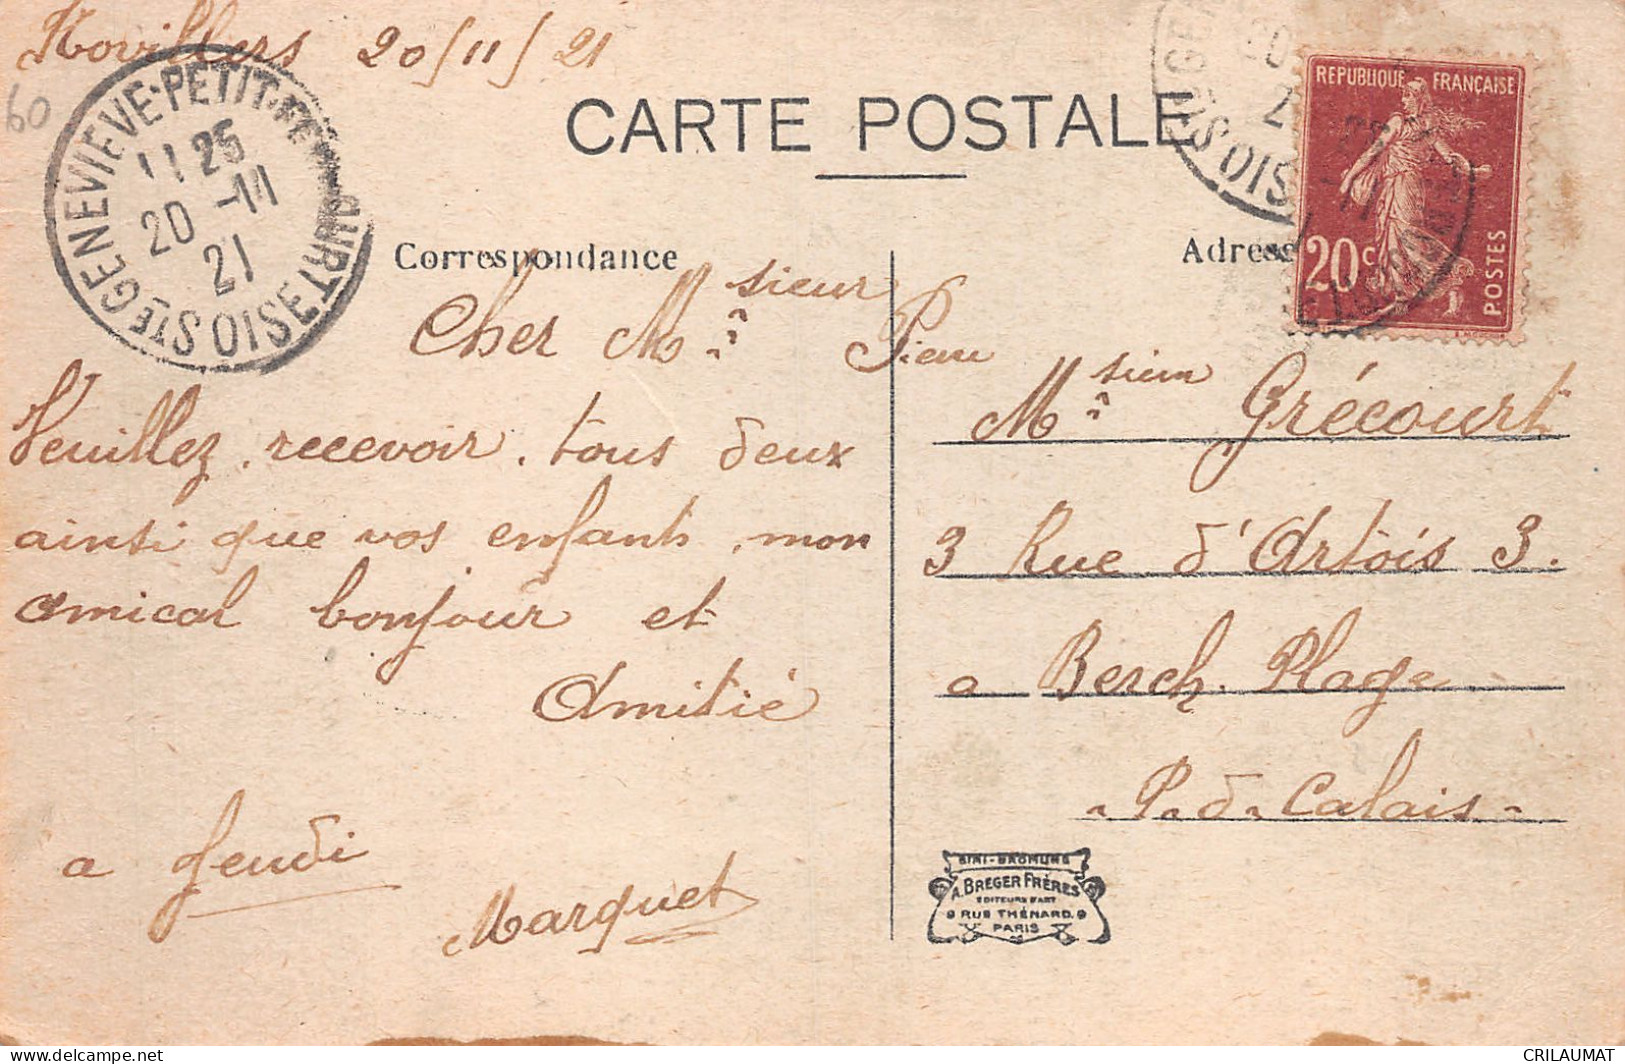 Novillers 20/11/21
60
STE GENEVIEVE-PETIT-FERCOURT
11 25
20 -11
21
OISE
CARTE POSTALE
REPUBLIQUE FRANÇAISE
20c
POSTES
OISE
Correspondance
Adresse
Cher Msieur
Veuillez recevoir tous deux
ainsi que vos enfants mon
amical bonjour et
Amitié
a Jeudi
Marquet
Msieur Grécourt
3 Rue d'Artois 3.
a Berck. Plage
P. d. Calais
SIRI-BROMURE
A. BREGER FRÈRES
EDITEURS D'ART
9 RUE THÉNARD. 9
PARIS
www.delcampe.net
CRILAUMAT